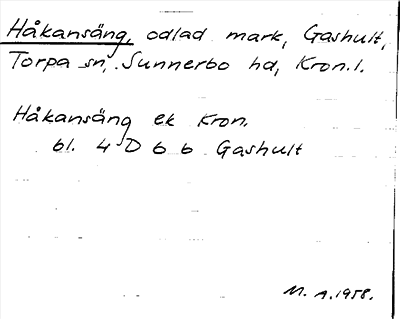 Håkansäng, odlad mark, Gashult,
Torpa sn, Sunnerbo hd, Kron. l.
Håkansäng ek Kron.
bl. 4 D 6 b Gashult
M. A. 1958.